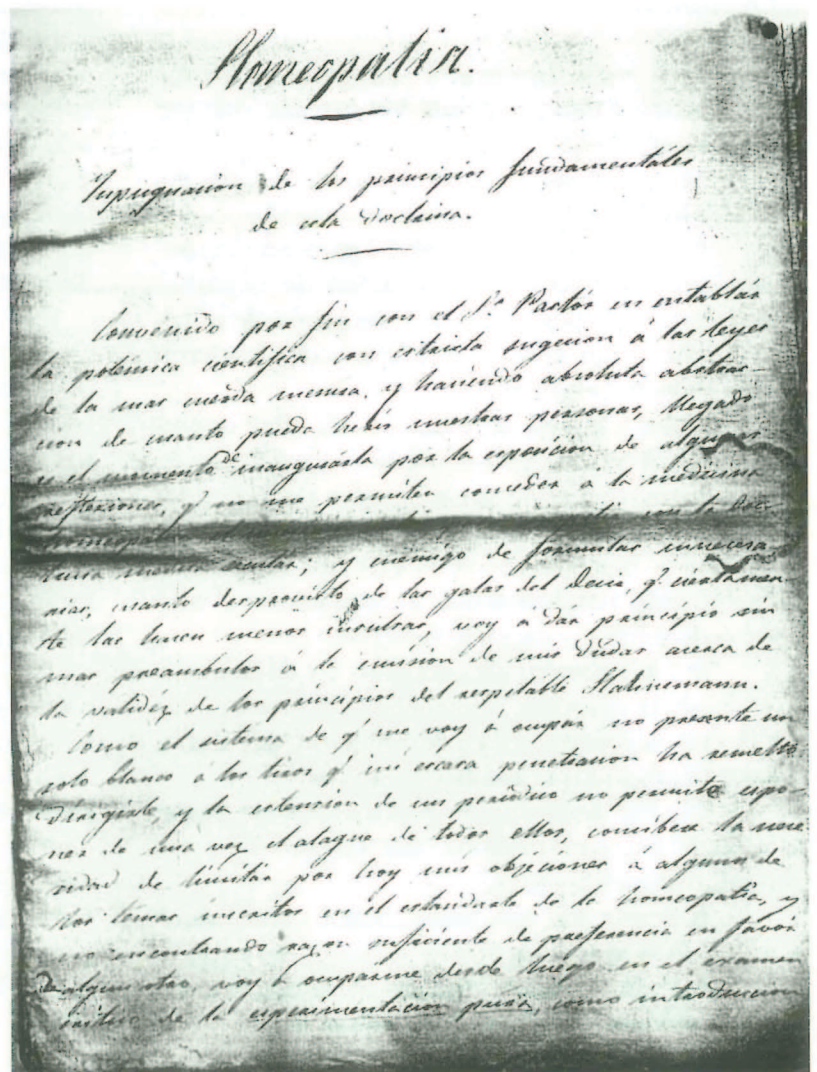 Homeopatia.
Inpugnacion de los principios fundamentales
de esta doctrina.
Convenido por fin con el Sr. Pastór en entablár
la polémica cientifica con estricta sugecion á las leyes
de la mas cuerda mesura, y haciendo absoluta abstrac-
cion de cuanto pueda herir nuestras personas, llegado
es el momento de inaugurárla por la esposicion de algunas
reflexiones, q.e no me permiten conceder á la medicina
con la
y enemigo de formulas innecesa-
rias, cuanto desprovisto de las galas del decir, q.e ciertamen-
te las hacen menos insulsas, voy á dár principio sin
mas preambulos á la emision de mis dudas acerca de
la validéz de los principios del respetable Hahnemann.
Como el sistema de q.e me voy á ocupár no presente un
solo blanco á los tiros q.e mi escasa penetracion ha resuelto
dirigirle, y la estension de un periódico no permite espo-
ner de una vez el ataque de todos ellos, concíbese la nece-
sidad de limitár por hoy mis objeciones á alguno de
los temas inscritos en el estandarte de la homeopatia, y
no encontrando razon suficiente de preferencia en favór
de algun otro, voy á ocuparme desde luego en el exámen
crítico de la esperimentacion pura, como introduccion